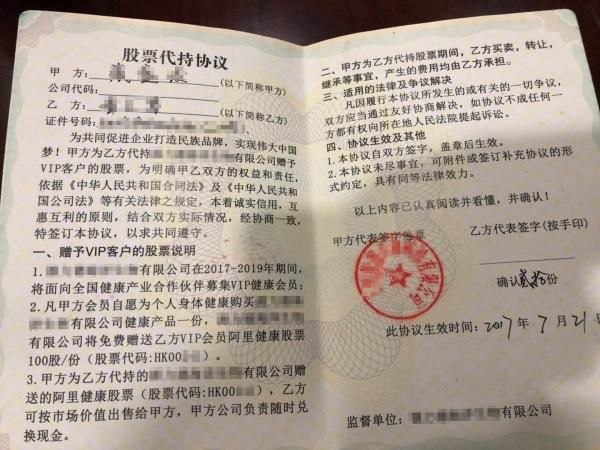 股票代持协议
甲 方:
(以下简称甲方)
公司代码:
乙 方:
(以下简称乙方)
证件号码:
为共同促进企业打造民族品牌,实现伟大中国
梦!甲方为乙方代持 有限公司赠予
VIP客户的股票,为明确甲乙双方的权益和责任,
依据《中华人民共和国合同法》及《中华人民共和
国公司法》等有关法律之规定,本着诚实信用,互
惠互利的原则,结合双方实际情况,经协商一致,
特签订本协议,以求共同遵守。
一、赠予VIP客户的股票说明
1. 有限公司在2017-2019年期间,
将面向全国健康产业合作伙伴募集VIP健康会员;
2. 凡甲方会员自愿为个人身体健康购买
有限公司健康产品一份,
有限公司将免费赠送乙方VIP会员阿里健康股票
100股/份(股票代码:HK00 )。
3.甲方为乙方代持的 有限公司赠
送的阿里健康股票(股票代码:HK00 ),乙方
可按市场价值出售给甲方,甲方公司负责随时兑
换现金。
二、甲方为乙方代持股票期间,乙方买卖,转让,
继承等事宜,产生的费用均由乙方承担。
三、适用的法律及争议解决
凡因履行本协议所发生的或有关的一切争议,
双方应当通过友好协商解决,如协议不成任何一
方都有权向所在地人民法院提起诉讼。
四、协议生效及其他
1.本协议自双方签字,盖章后生效。
2.本协议未尽事宜,可附件或签订补充协议的形
式约定,具有同等法律效力。
以上内容已认真阅读并看懂,并确认!
甲方代表签字盖章
乙方代表签字(按手印)
有限公司
确认贰拾份
此协议生效时间:2017年7月21日
监督单位: 有限公司